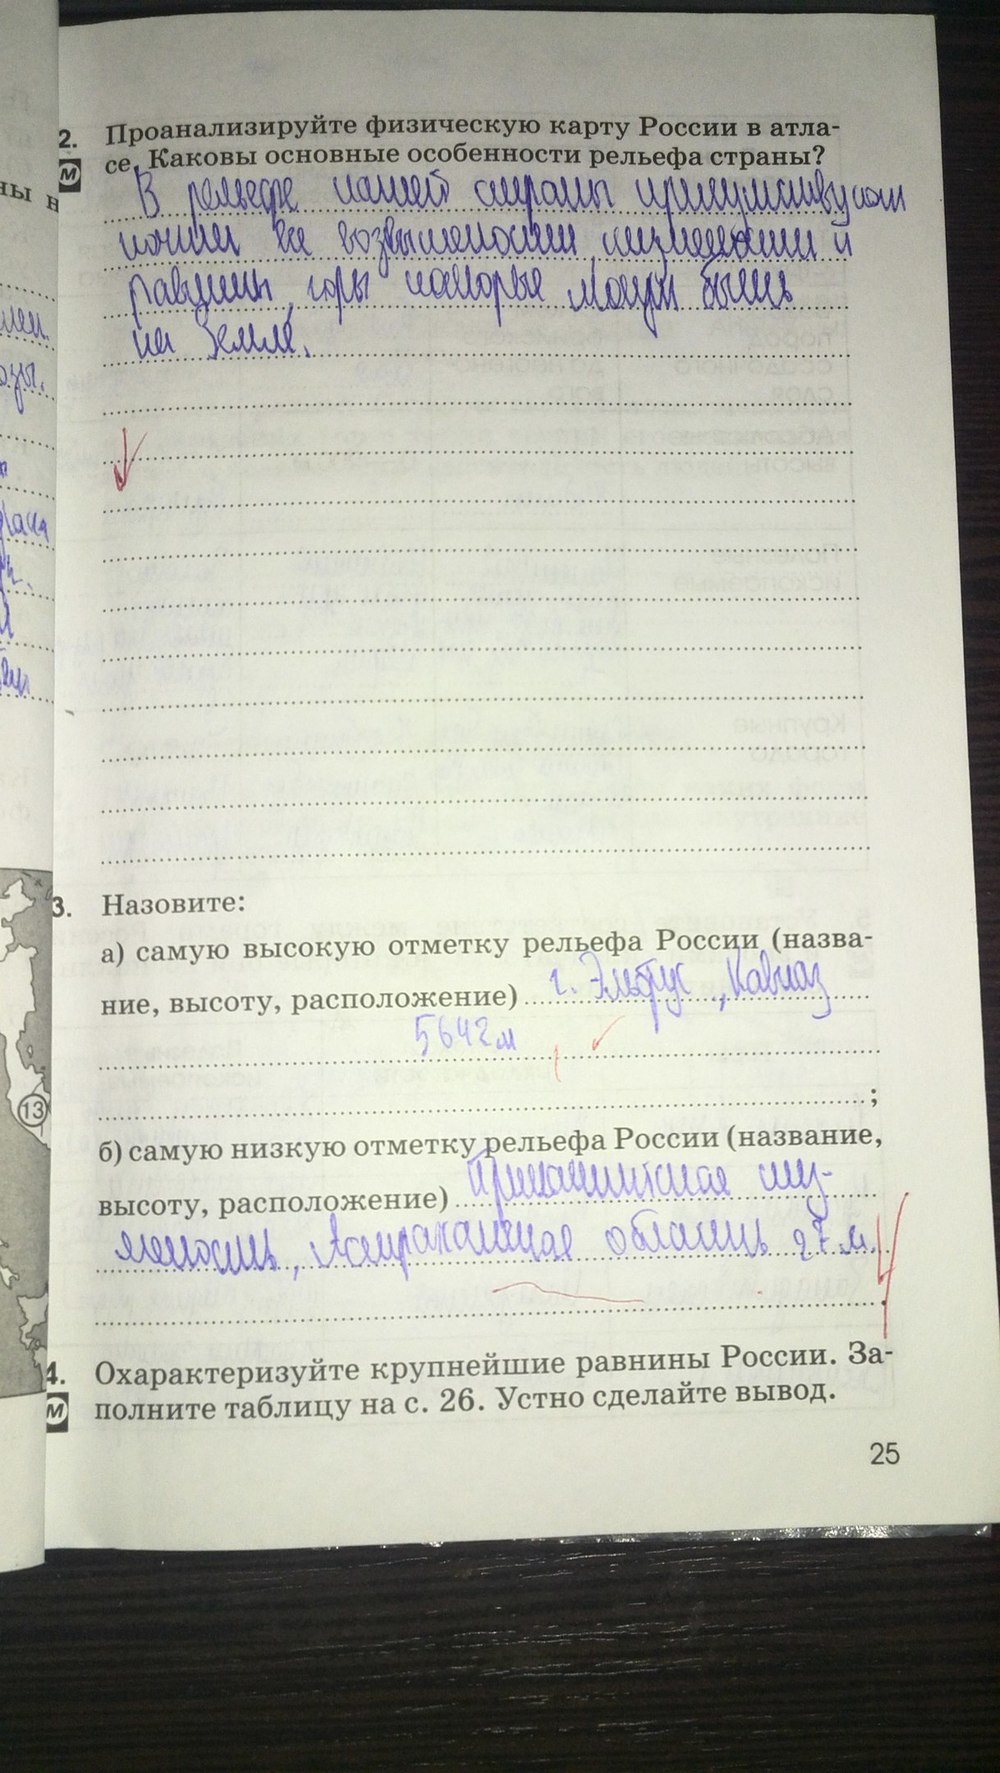 2. Проанализируйте физическую карту России в атла-
М се. Каковы основные особенности рельефа страны?
В рельефе нашей страны
почти все возвышенности, низменности и
равнины, горы которые могут быть
на Земле.
3. Назовите:
а) самую высокую отметку рельефа России (назва-
ние, высоту, расположение) г. Эльбрус, Кавказ
5642 м
;
б) самую низкую отметку рельефа России (название,
высоту, расположение) Прикаспийская низ-
менность, Астраханская область 27 м
4. Охарактеризуйте крупнейшие равнины России. За-
М полните таблицу на с. 26. Устно сделайте вывод.
25
13